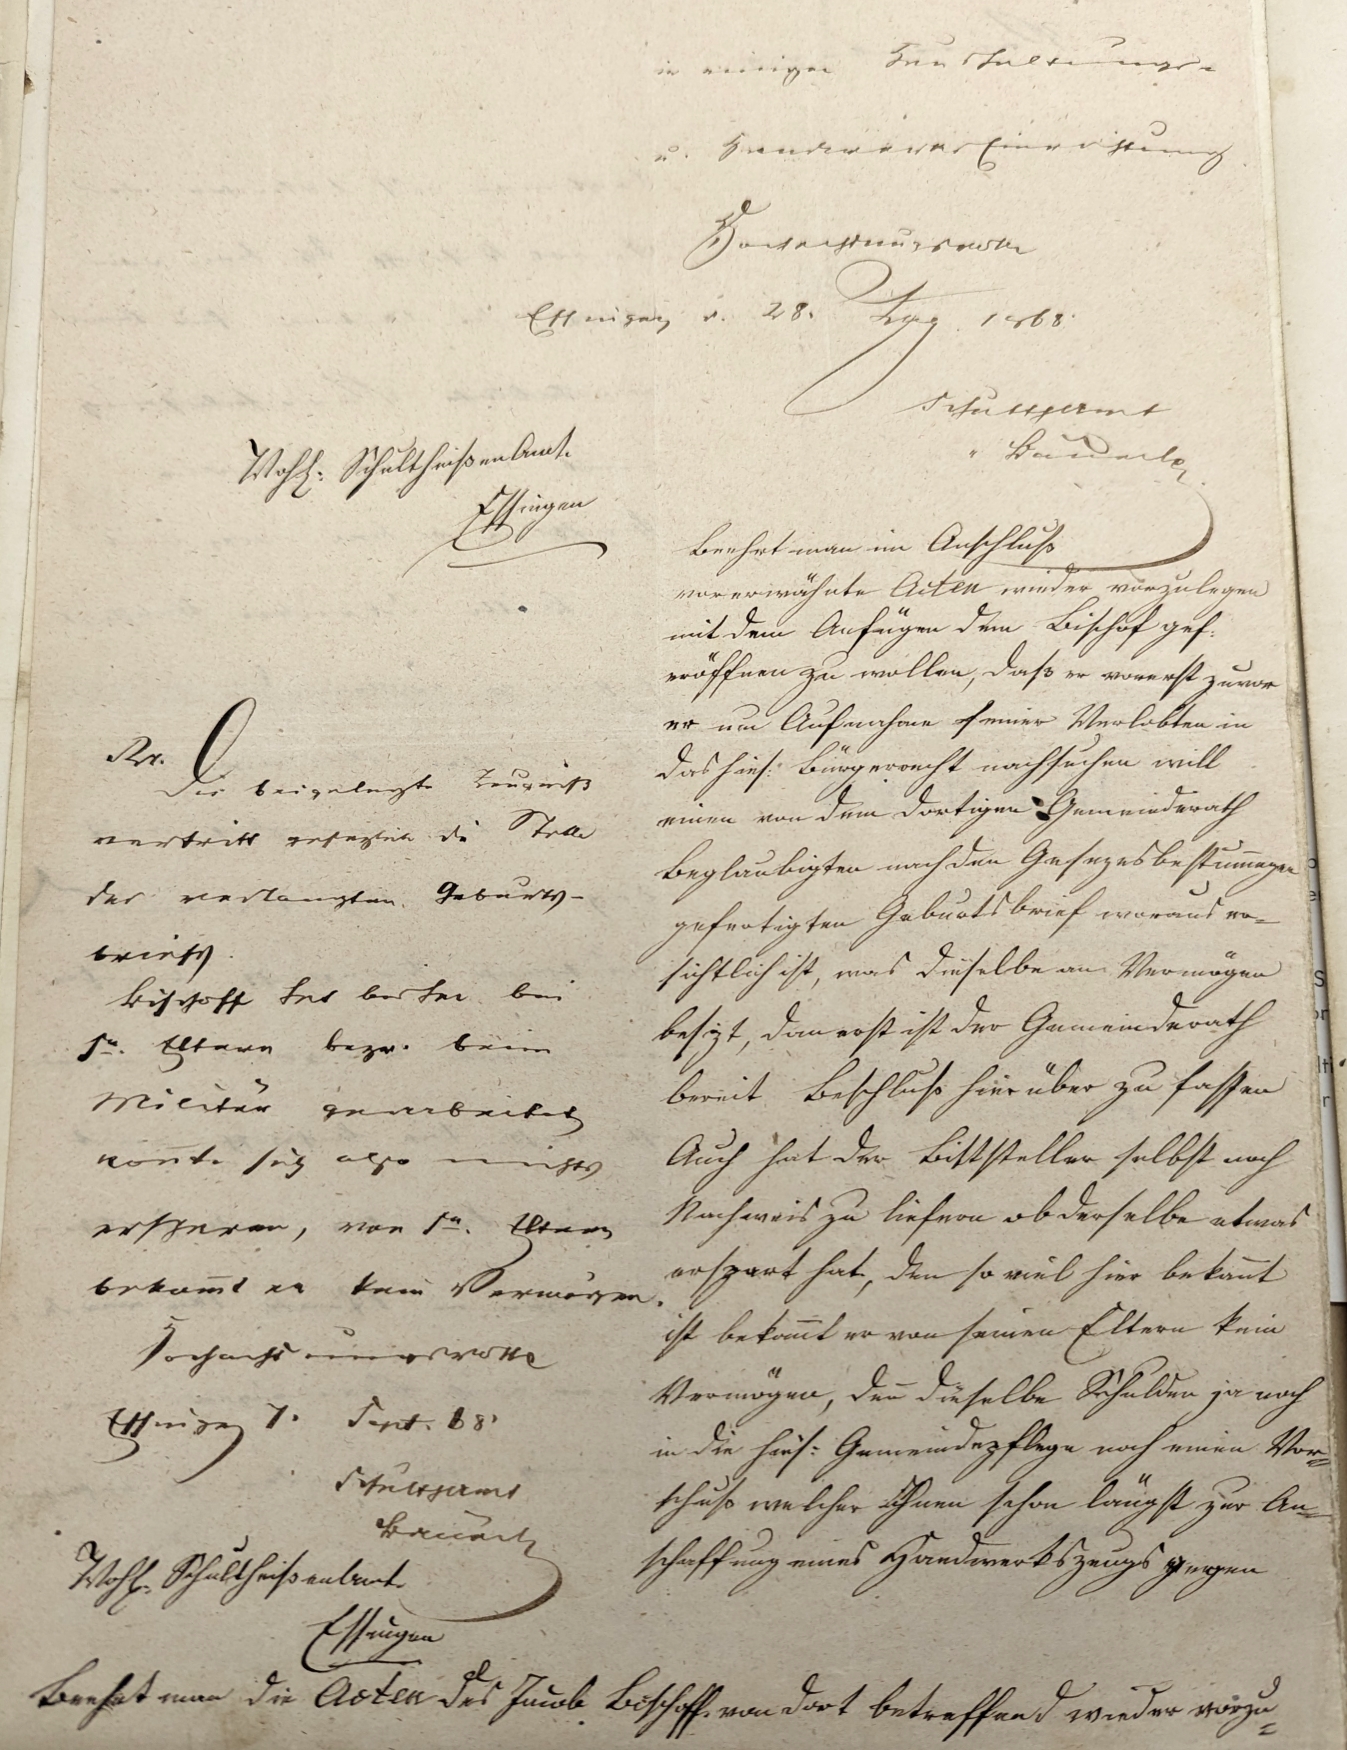 in einigen Haushaltungs-
u. Handwerks Einrichtung
Hochachtungsvolle
Essingen d. 28. Aug. 1868.
Schulthßamt
Bäuerle
Wohll: Schultheißen Amt.
Essingen
Beehrt man im Anschluß
vorerwähnte Acten wieder vorzulegen
mit dem Anfügen dem Bischof gef.
eröffnen zu wollen, daß er vorerst zuvor
er um Aufnahme seiner Verlobten in
das hies: Bürgerrecht nachsuchen will
einen von dem dortigen Gemeinderath
Beglaubigten nach den Gesezesbestimmungen
gefertigten Geburtsbrief woraus er-
sichtlich ist, was dieselbe an Vermögen
besizt, dan erst ist der Gemeinderath
bereit Beschluß hierüber zu fassen
Auch hat der Bittsteller selbst noch
Nachweis zu liefern ob derselbe etwas
erspart hat, den so viel hier bekannt
ist bekommt er von seinen Eltern kein
Vermögen, den dieselbe Schulden ja noch
in die hies: Gemeindepflege noch einen Vor-
schuß welcher Ihnen schon längst zur An-
schaffung eines Handwerkszeugs gegen
Nr.
Das beigelegte Zeugniß
vertritt gesezlich die Stelle
des verlangten Geburts-
briefs.
Bischoff hat bisher bei
sn. Eltern bezw. beim
Militär gearbeitet
konnte sich also nichts
ersparen, von sn. Eltern
bekommt er kein Vermögen.
Hochachtungsvolle
Essingen 7. Sept. 68.
Schulthßamt
Bäuerle
Wohll. Schultheißenamt.
Essingen
Beehrt man die Acten des Jacob Bischoff von dort betreffend wieder vorzu-